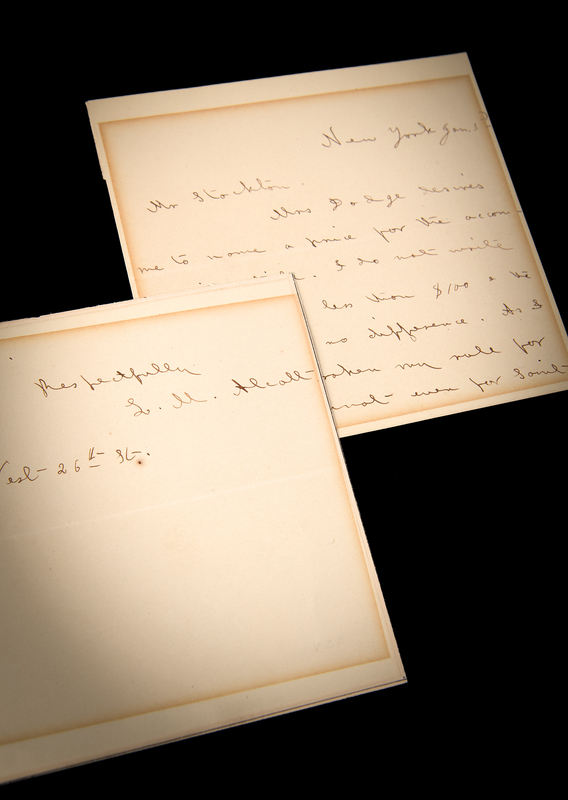 New York Jan. 3
Mr Stockton.
Mrs Dodge desires
me to name a price for the accom-
. I do not write
less than $100 & the
no difference. As I
taken my rule for
not even for Scrib-
Respectfully
L. M. Alcott
West 26th St.